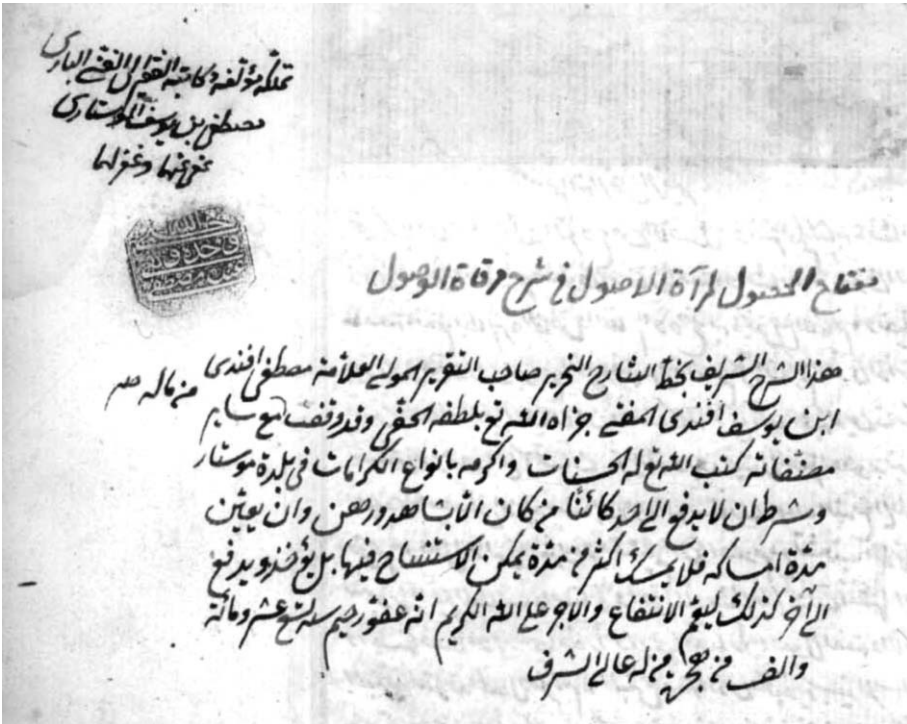 تملكه مؤلفه وكاتبه الفقير الى الغني الباري
مصطفى بن يوسف الموستاري
عفي عنهما وغفر لهما
مفتاح الحصول لمرآة الاصول في شرح مرقاة الوصول
هذا الشرح الشريف بخط الشارح النحرير صاحب التقرير المولى العلامة مصطفى افندى
ابن يوسف افندى المفتي جزاه الله تع بلطفه الخفي وقد وقفت مع ساير
من ماله
مصنفاته كتب الله تع له الحسنات واكرمه بانواع الكرامات في بلدة موستار
وشرط ان لا يدفع الى احد كائنا من كان الا بشاهد ورهن وان يعين
مدة امساكه فلا يمسك اكثر من مدة يمكن الاستنساخ فيها بل يؤخذ ويدفع
الى آخر كذلك ليعم الانتفاع والاجر على الله الكريم انه غفور رحيم سنة تسع عشر ومائة
والف من هجرة من له عالي الشرف